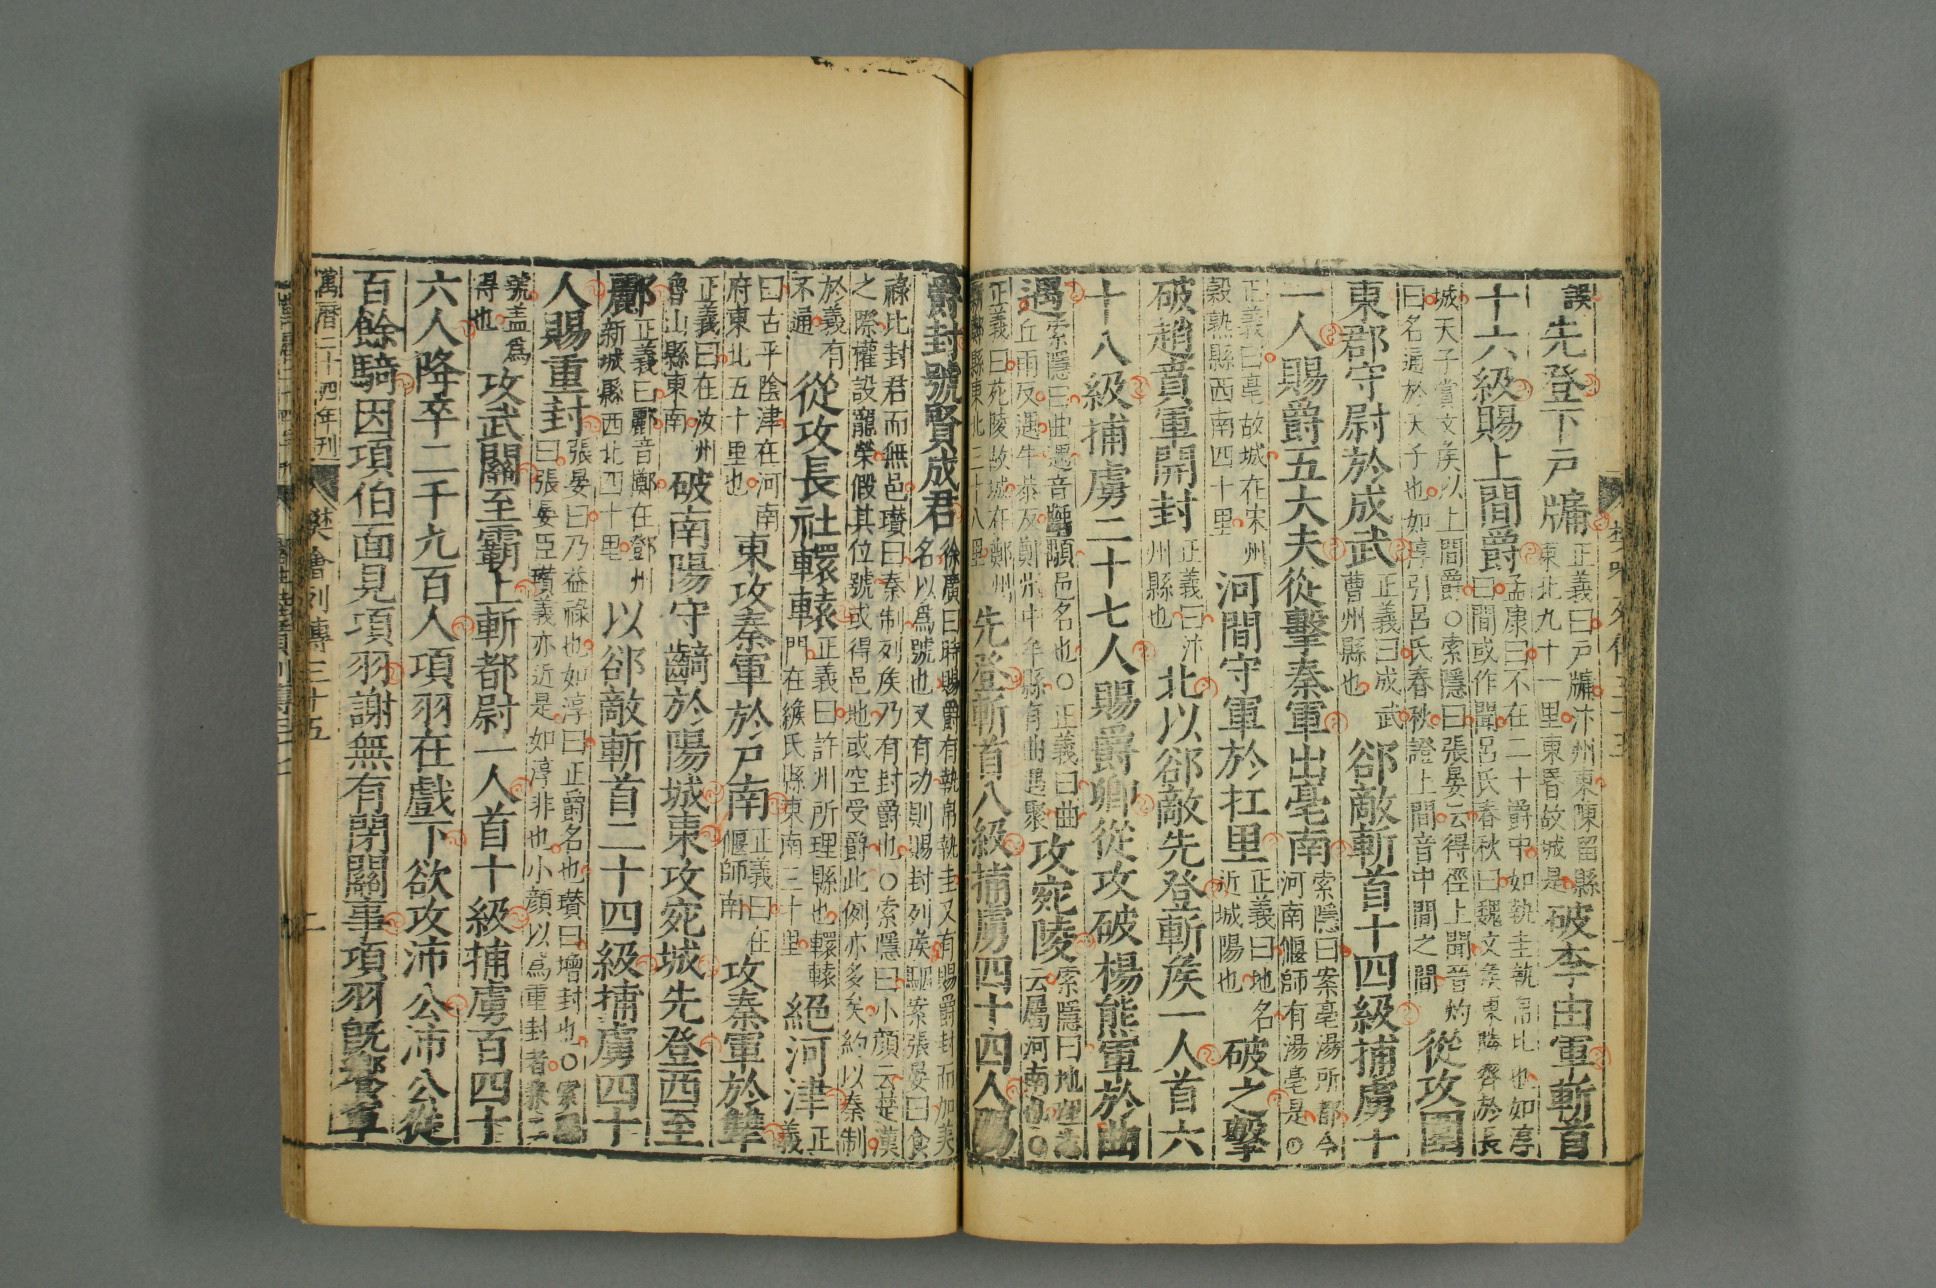 誤先登下戸牖正義曰戸牖汴州東陳留縣東北九十一里東昏故城是破李由軍斬首
十六級賜上間爵孟康曰不在二十爵中如執圭執帛比也如淳曰間或作聞呂氏春秋曰魏文矦東勝齊於長
城天子賞文矦以上間爵○索隱曰張晏云得徑上聞晉灼曰名通於天子也如淳引呂氏春秋證上間音中間之間從攻圍
東郡守尉於成武正義曰成武曹州縣也郤敵斬首十四級捕虜十
一人賜爵五大夫從擊秦軍出亳南索隱曰案亳湯所都今河南偃師有湯亳是○
正義曰亳故城在宋州穀熟縣西南四十里河間守軍於扛里正義曰地名近城陽也破之擊
破趙賁軍開封正義曰汴州縣也北以郤敵先登斬矦一人首六
十八級捕虜二十七人賜爵卿從攻破楊熊軍於曲
遇索隱曰曲遇音齲顒邑名也○正義曰曲丘雨反遇牛恭反鄭州中牟縣有曲遇聚攻宛陵索隱曰地理志云屬河南也○
正義曰苑陵故城在鄭州新鄭縣東北三十八里先登斬首八級捕虜四十四人賜
爵封號賢成君徐廣曰時賜爵有執帛執圭又有賜爵封而加美名以爲號也又有功則賜封列矦駰案張晏曰食
祿比封君而無邑瓚曰秦制列矦乃有封爵也○索隱曰小顔云楚漢之際權設寵榮假其位號或得邑地或空受爵此例亦多矣約以秦制
於義有不通從攻長社轘轅正義曰許州所理縣也轘轅門在緱氏縣東南三十里絕河津正義
曰古平陰津在河南府東北五十里也東攻秦軍於尸南正義曰在偃師南攻秦軍於犨
正義曰在汝州魯山縣東南破南陽守齮於陽城東攻宛城先登西至
酈正義曰酈音擲在鄧州新城縣西北四十里以郤敵斬首二十四級捕虜四十
人賜重封張晏曰乃益祿也如淳曰正爵名也瓚曰增封也○索隱曰張晏臣瓚義亦近是如淳非也小顔以爲重封者兼二
號盖爲得也攻武關至霸上斬都尉一人首十級捕虜百四十
六人降卒二千九百人項羽在戲下欲攻沛公沛公從
百餘騎因項伯面見項羽謝無有閉關事項羽旣饗軍
萬曆二十四年刊 樊噲列傳三十五 二